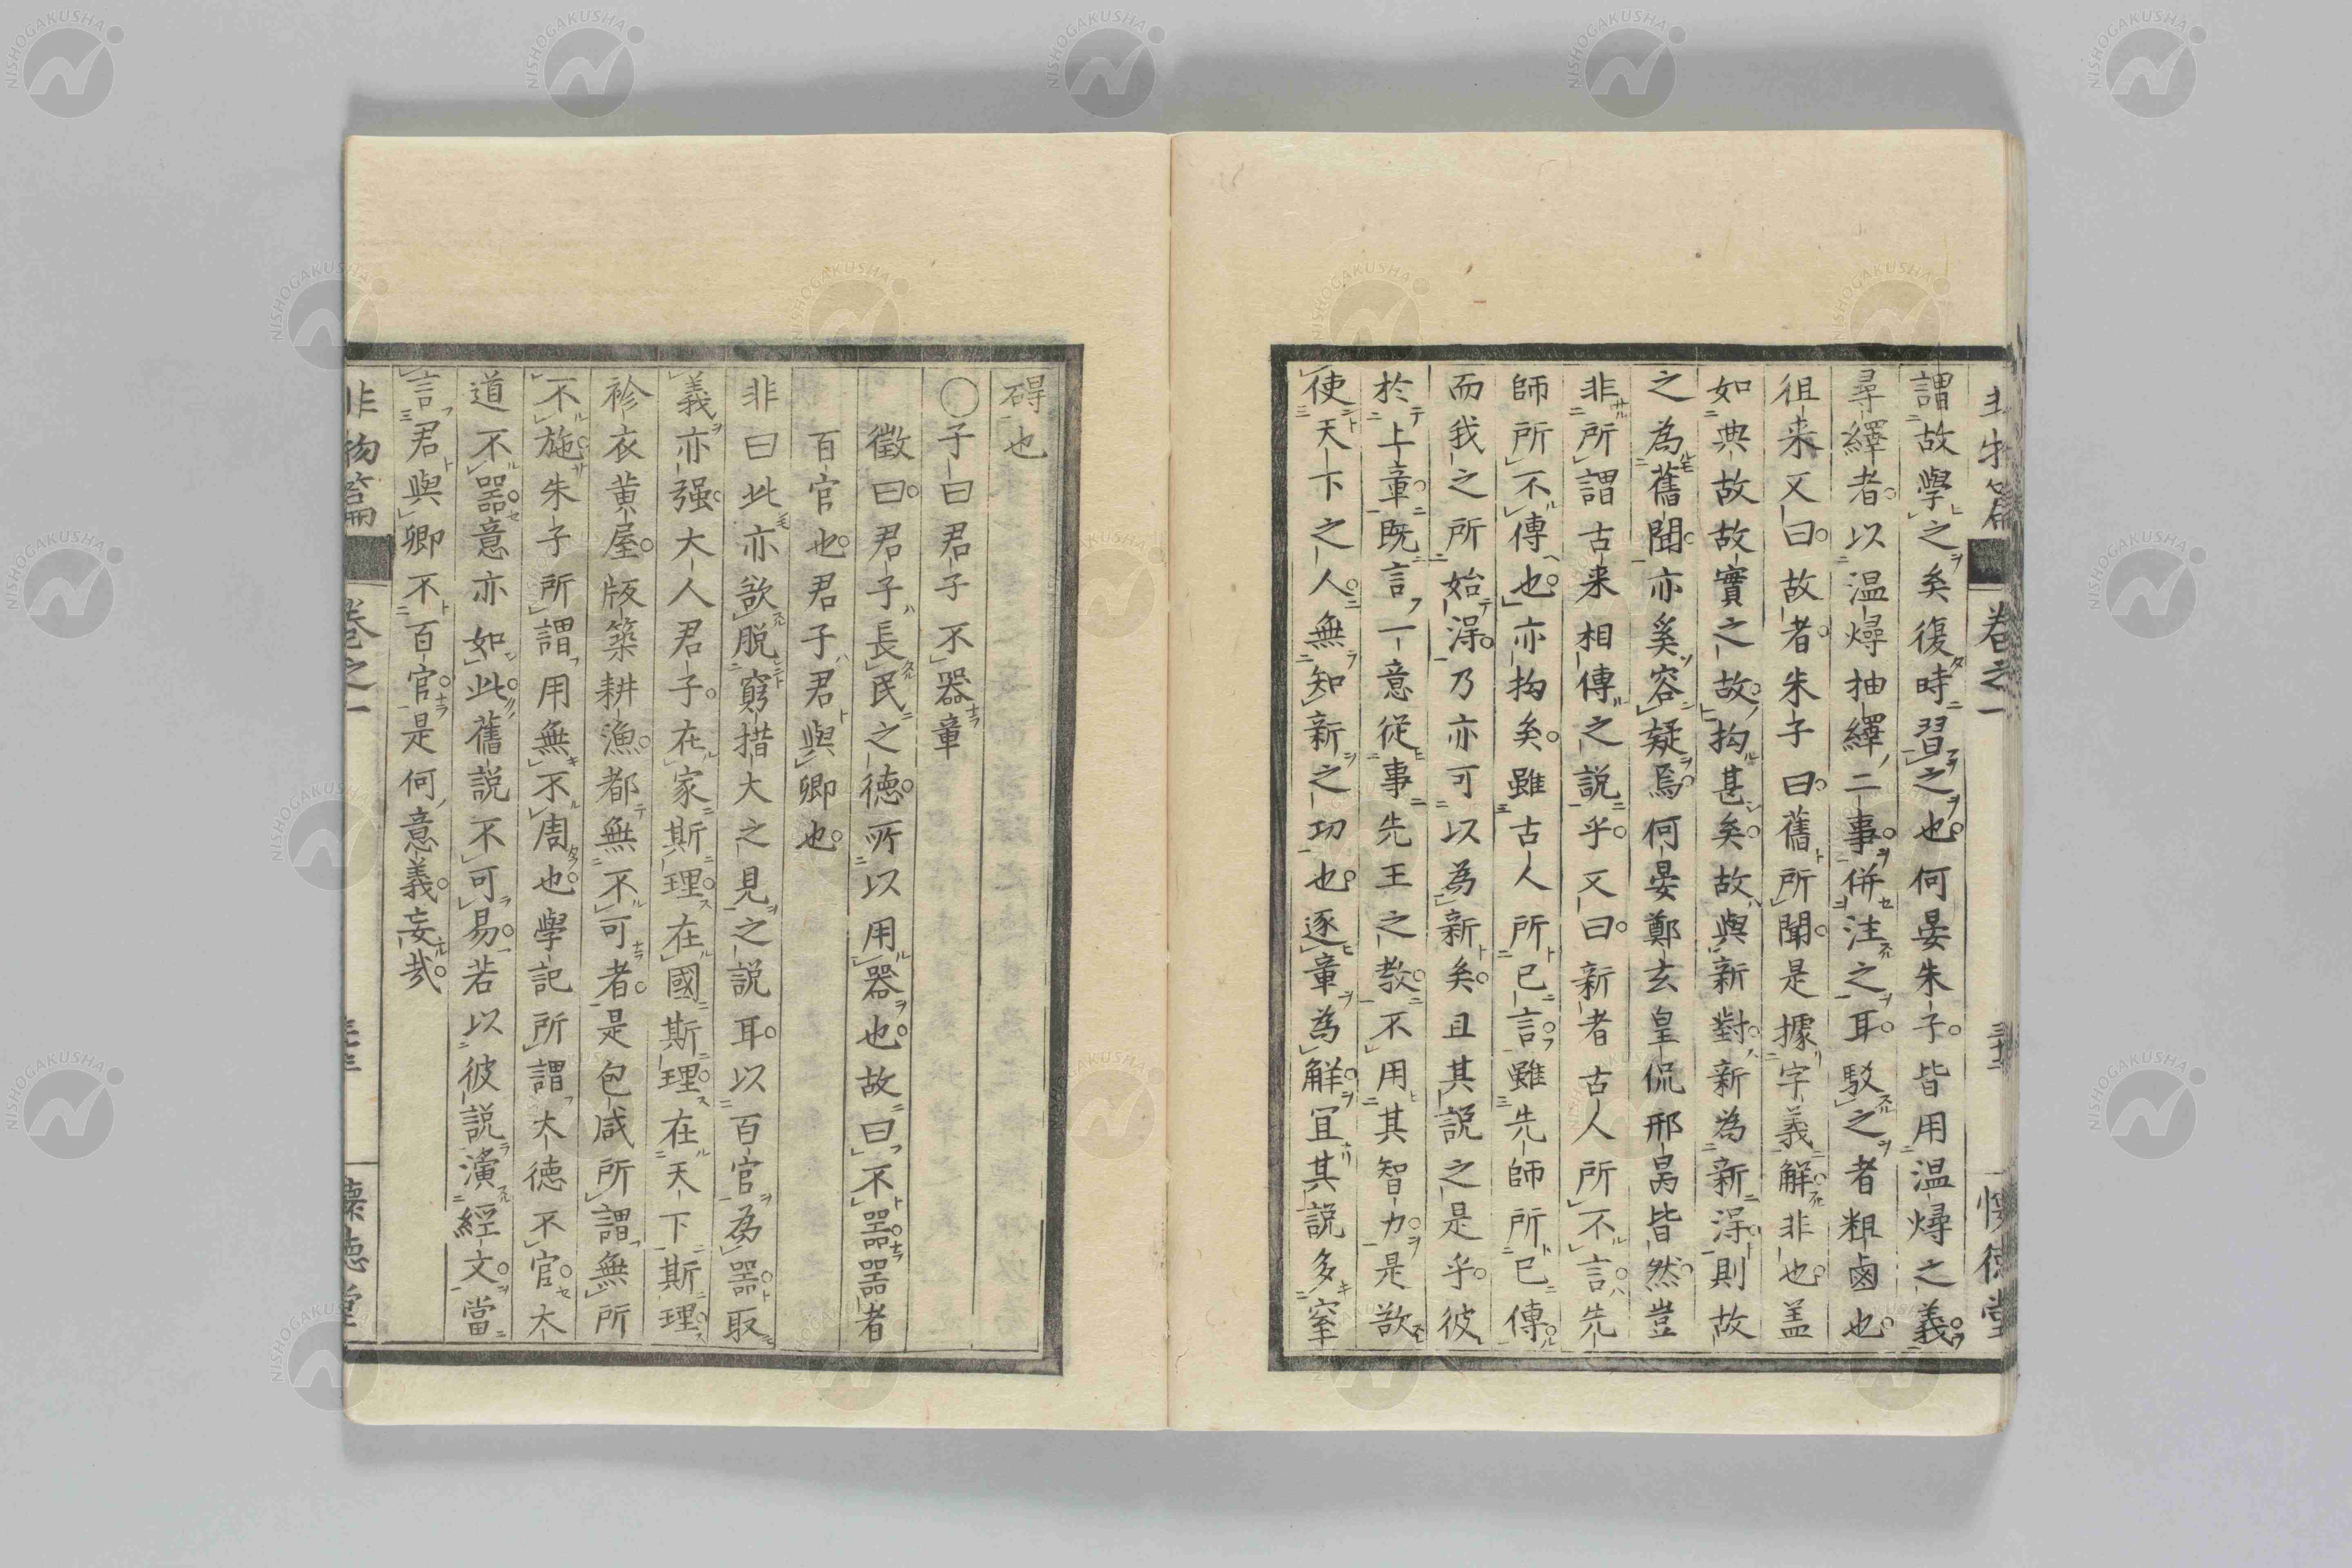 非物篇 卷之一 懷德堂
謂故學之矣復時習之也何晏朱子皆用温燖之義
尋繹者以温燖抽繹二事併注之耳駁之者粗鹵也
徂来又曰故者朱子曰舊所聞是據字義解非也盖
如典故故實之故拘甚矣故與新對新為新淂則故
之為舊聞亦奚容疑焉何晏鄭玄皇侃邢昺皆然豈
非所謂古来相傳之説乎又曰新者古人所不言先
師所不傳也亦拘矣雖古人所已言雖先師所已傳
而我之所始淂乃亦可以為新矣且其説之是乎彼
於上章既言一意従事先王之教不用其智力是欲
使天下之人無知新之功也逐章為解宜其説多窒
碍也
○子曰君子不器章
徵曰君子長民之德所以用器也故曰不器器者
百官也君子君與卿也
非曰此亦欲脱窮措大之見之説耳以百官為器取
義亦强大人君子在家斯理在國斯理在天下斯理
袗衣黄屋版築耕漁都無不可者是包咸所謂無所
不施朱子所謂用無不周也學記所謂大德不官大
道不器意亦如此舊説不可易若以彼説演經文當
言君與卿不百官是何意義妄哉
非物篇 卷之一 懷德堂
NISHOGAKUSHA